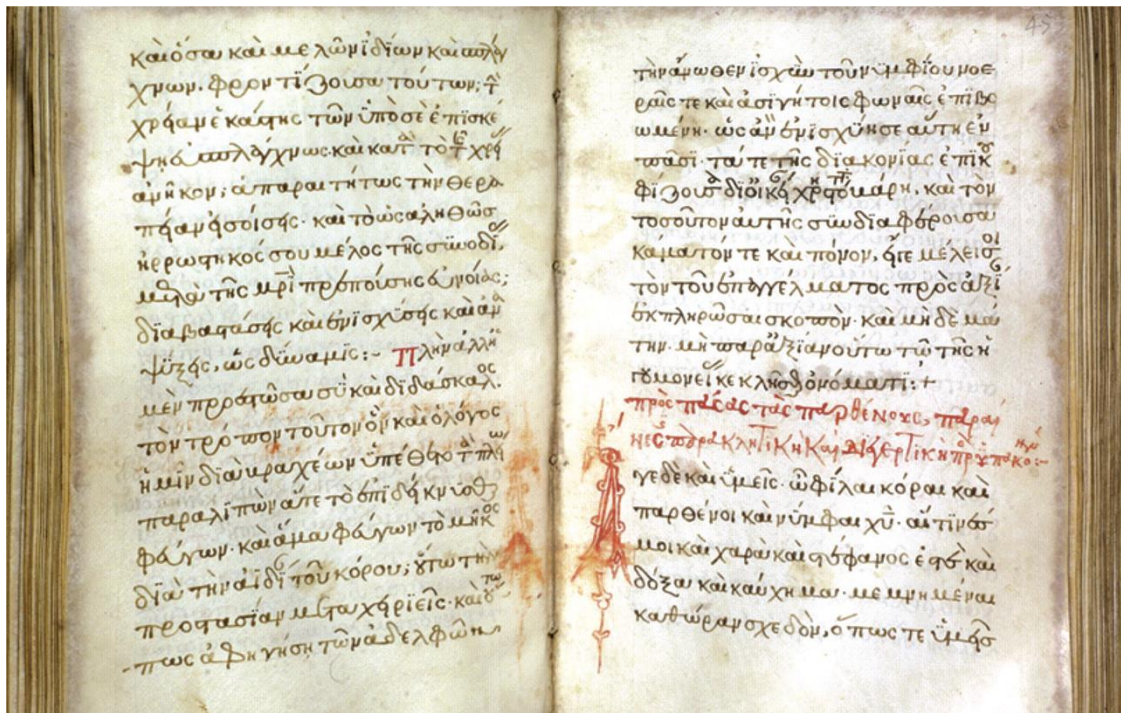 καὶ ὅσα καὶ μελῶν ἰδίων καὶ σπλά
χνων. φροντίζουσα τούτων;
χρήαν ἑκάστης τῶν ὑπὸ σὲ ἐπισκέ
ψη εὐσπλάγχνως. καὶ κατὰ τὸ
ἀνῆκον; ἀπαραιτήτως τὴν θερα
πείαν εἰσοίσης. καὶ τὸ ὡς ἀληθῶς
ἠρρωστηκός σου μέλος τῆς συνοδί
μετὰ τῆς πρεπούσης εὐνοίας;
διαβαστάσης καὶ ἐνισχύσης καὶ ἀνα
ψύξης, ὡς δύναμις :- Πλὴν ἀλλ
μὲν προεστῶσα σὺ καὶ διδάσκαλος
τὸν τρόπον τοῦτον ὃν καὶ ὁ λόγος
ἡμῖν διὰ βραχέων ὑπέθετο
παραλιπὼν ἅτε τὸ ἐπιδεικνύσθαι
φεύγων. καὶ ἅμα φεύγων τὸ μῆκος
διὰ τὴν ἀηδίαν τοῦ κόρου; οὕτω τὴν
προστασίαν μεταχειριεῖς. καὶ οὕτω
πως ἀφηγήση τῶν ἀδελφῶν
45
τὴν ἄνωθεν ἰσχὺν τοῦ νυμφίου νοε
ραῖς τε καὶ ἀσιγήτοις φωναῖς ἐπιβο
ωμένη. ὡς ἂν ἐνισχύση σε αὐτὴ ἐν
πᾶσι. τά τε τῆς διακονίας ἐπικ
τοσοῦτον αὐτῆς συνδιαφέρουσα
κάματόν τε καὶ πόνον,
τὸν τοῦ ἐπαγγέλματος πρὸς ἀξί
ἐκπληρῶσαι σκοπὸν. καὶ μὴ δὲ μά
την. μὴ παρ' ἀξίαν οὕτω τῶ τῆς ἡ
γουμονείας κεκλῆσθαι ὀνόματι : +
πρὸς πάσας τὰς παρθένους, παραί
νεσις παρακλητικὴ καὶ διεγερτικὴ
Ἄγε δὲ καὶ ὑμεῖς. ὦ φίλαι κόραι καὶ
παρθένοι καὶ νύμφαι χῦ. αἵτινές
μοι καὶ χαρὰ καὶ στέφανος ἐστὲ καὶ
δόξα καὶ καύχημα. μεμνημέναι
καθώραν σχεδὸν, ὅπως τε ὑμᾶς